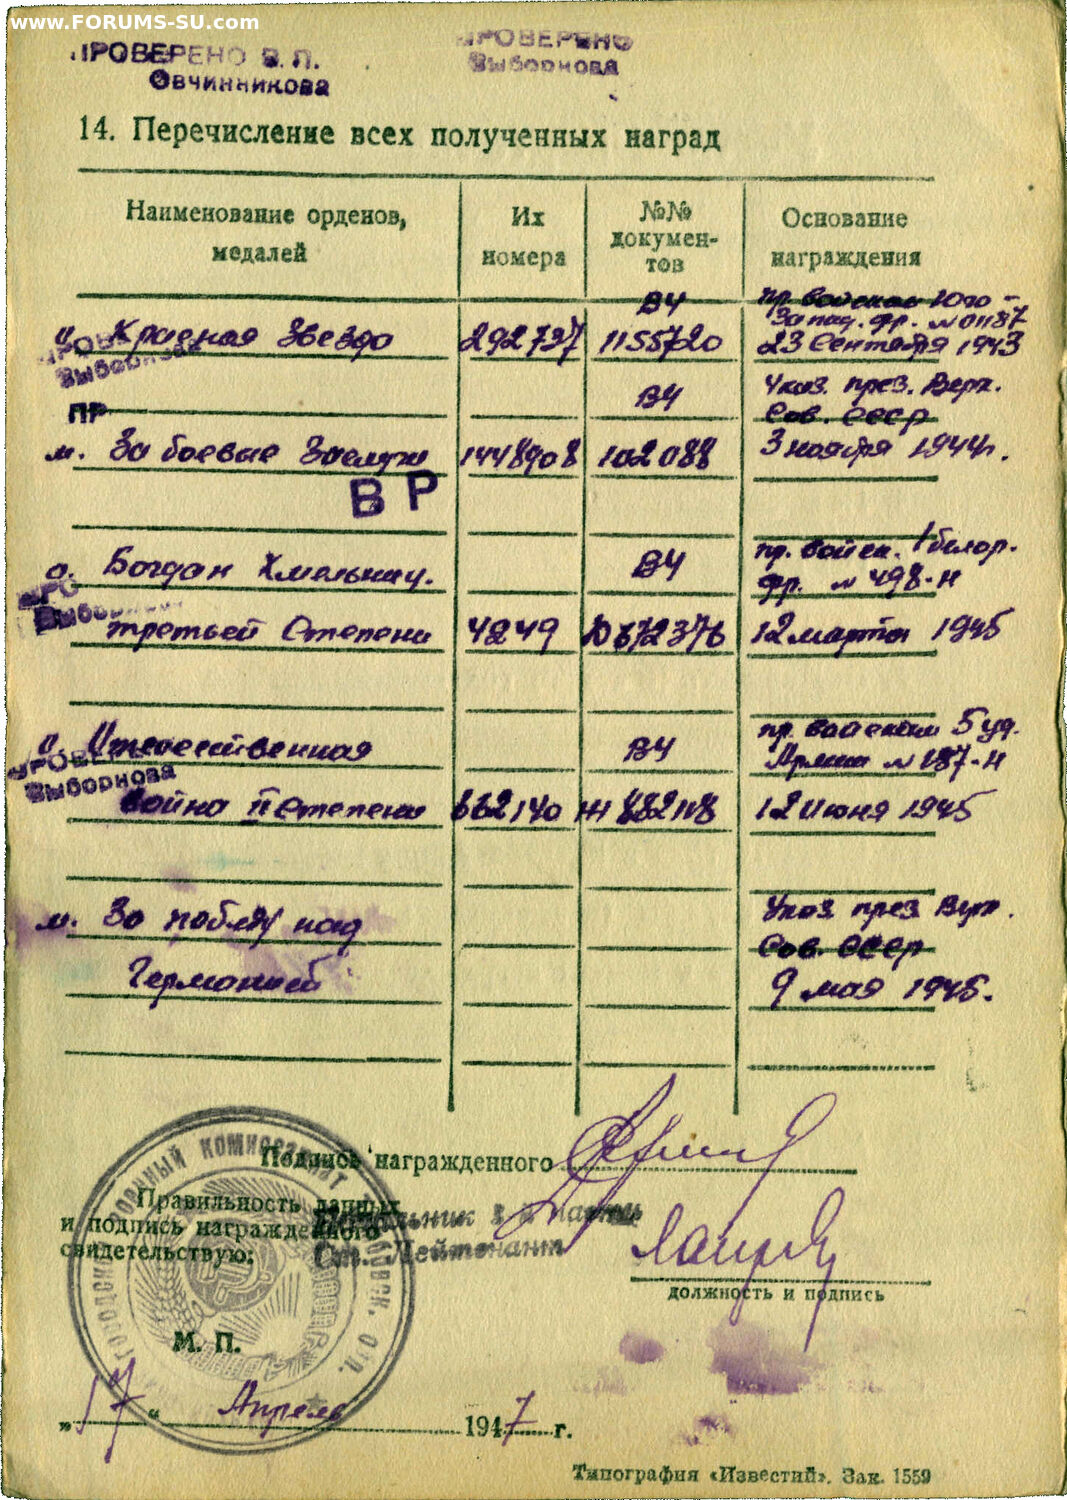 www.FORUMS-SU.com
ПРОВЕРЕНО В. П.
Овчинникова
ПРОВЕРЕНО
Выборнова
14. Перечисление всех полученных наград
Наименование орденов, медалей
Их номера
№№ документов
Основание награждения
ВЧ пр. войскам Юго-
Запад. фр. № 01187
о. Красная Звезда 292727 1155720 23 Сентября 1943
ПРОВЕРЕНО
Выборнова
ВЧ Указ. през. Верх.
ПР Сов. СССР
м. За боевые Заслуги 1448908 102088 3 ноября 1944г.
ВР
пр. войск. 1 белор.
о. Богдан Хмельниц. ВЧ фр. № 498-н
ПРО
Выборнова
третьей Степени 4249 672376 12 марта 1945
пр. войскам 5 уд.
о. Отечественная ВЧ Армии № 187-н
ПРОВЕРЕНО
Выборнова
война II Степени 662140 882118 12 Июня 1945
м. За победу над Указ. през. Верх.
Сов. СССР
Германией 9 мая 1945.
Подпись награжденного
Правильность данных
и подпись награжденного
свидетельствую:
Начальник 3 й части
Ст. Лейтенант
должность и подпись
М. П.
„17“ Апрель 1947 г.
Типография «Известий». Зак. 1559